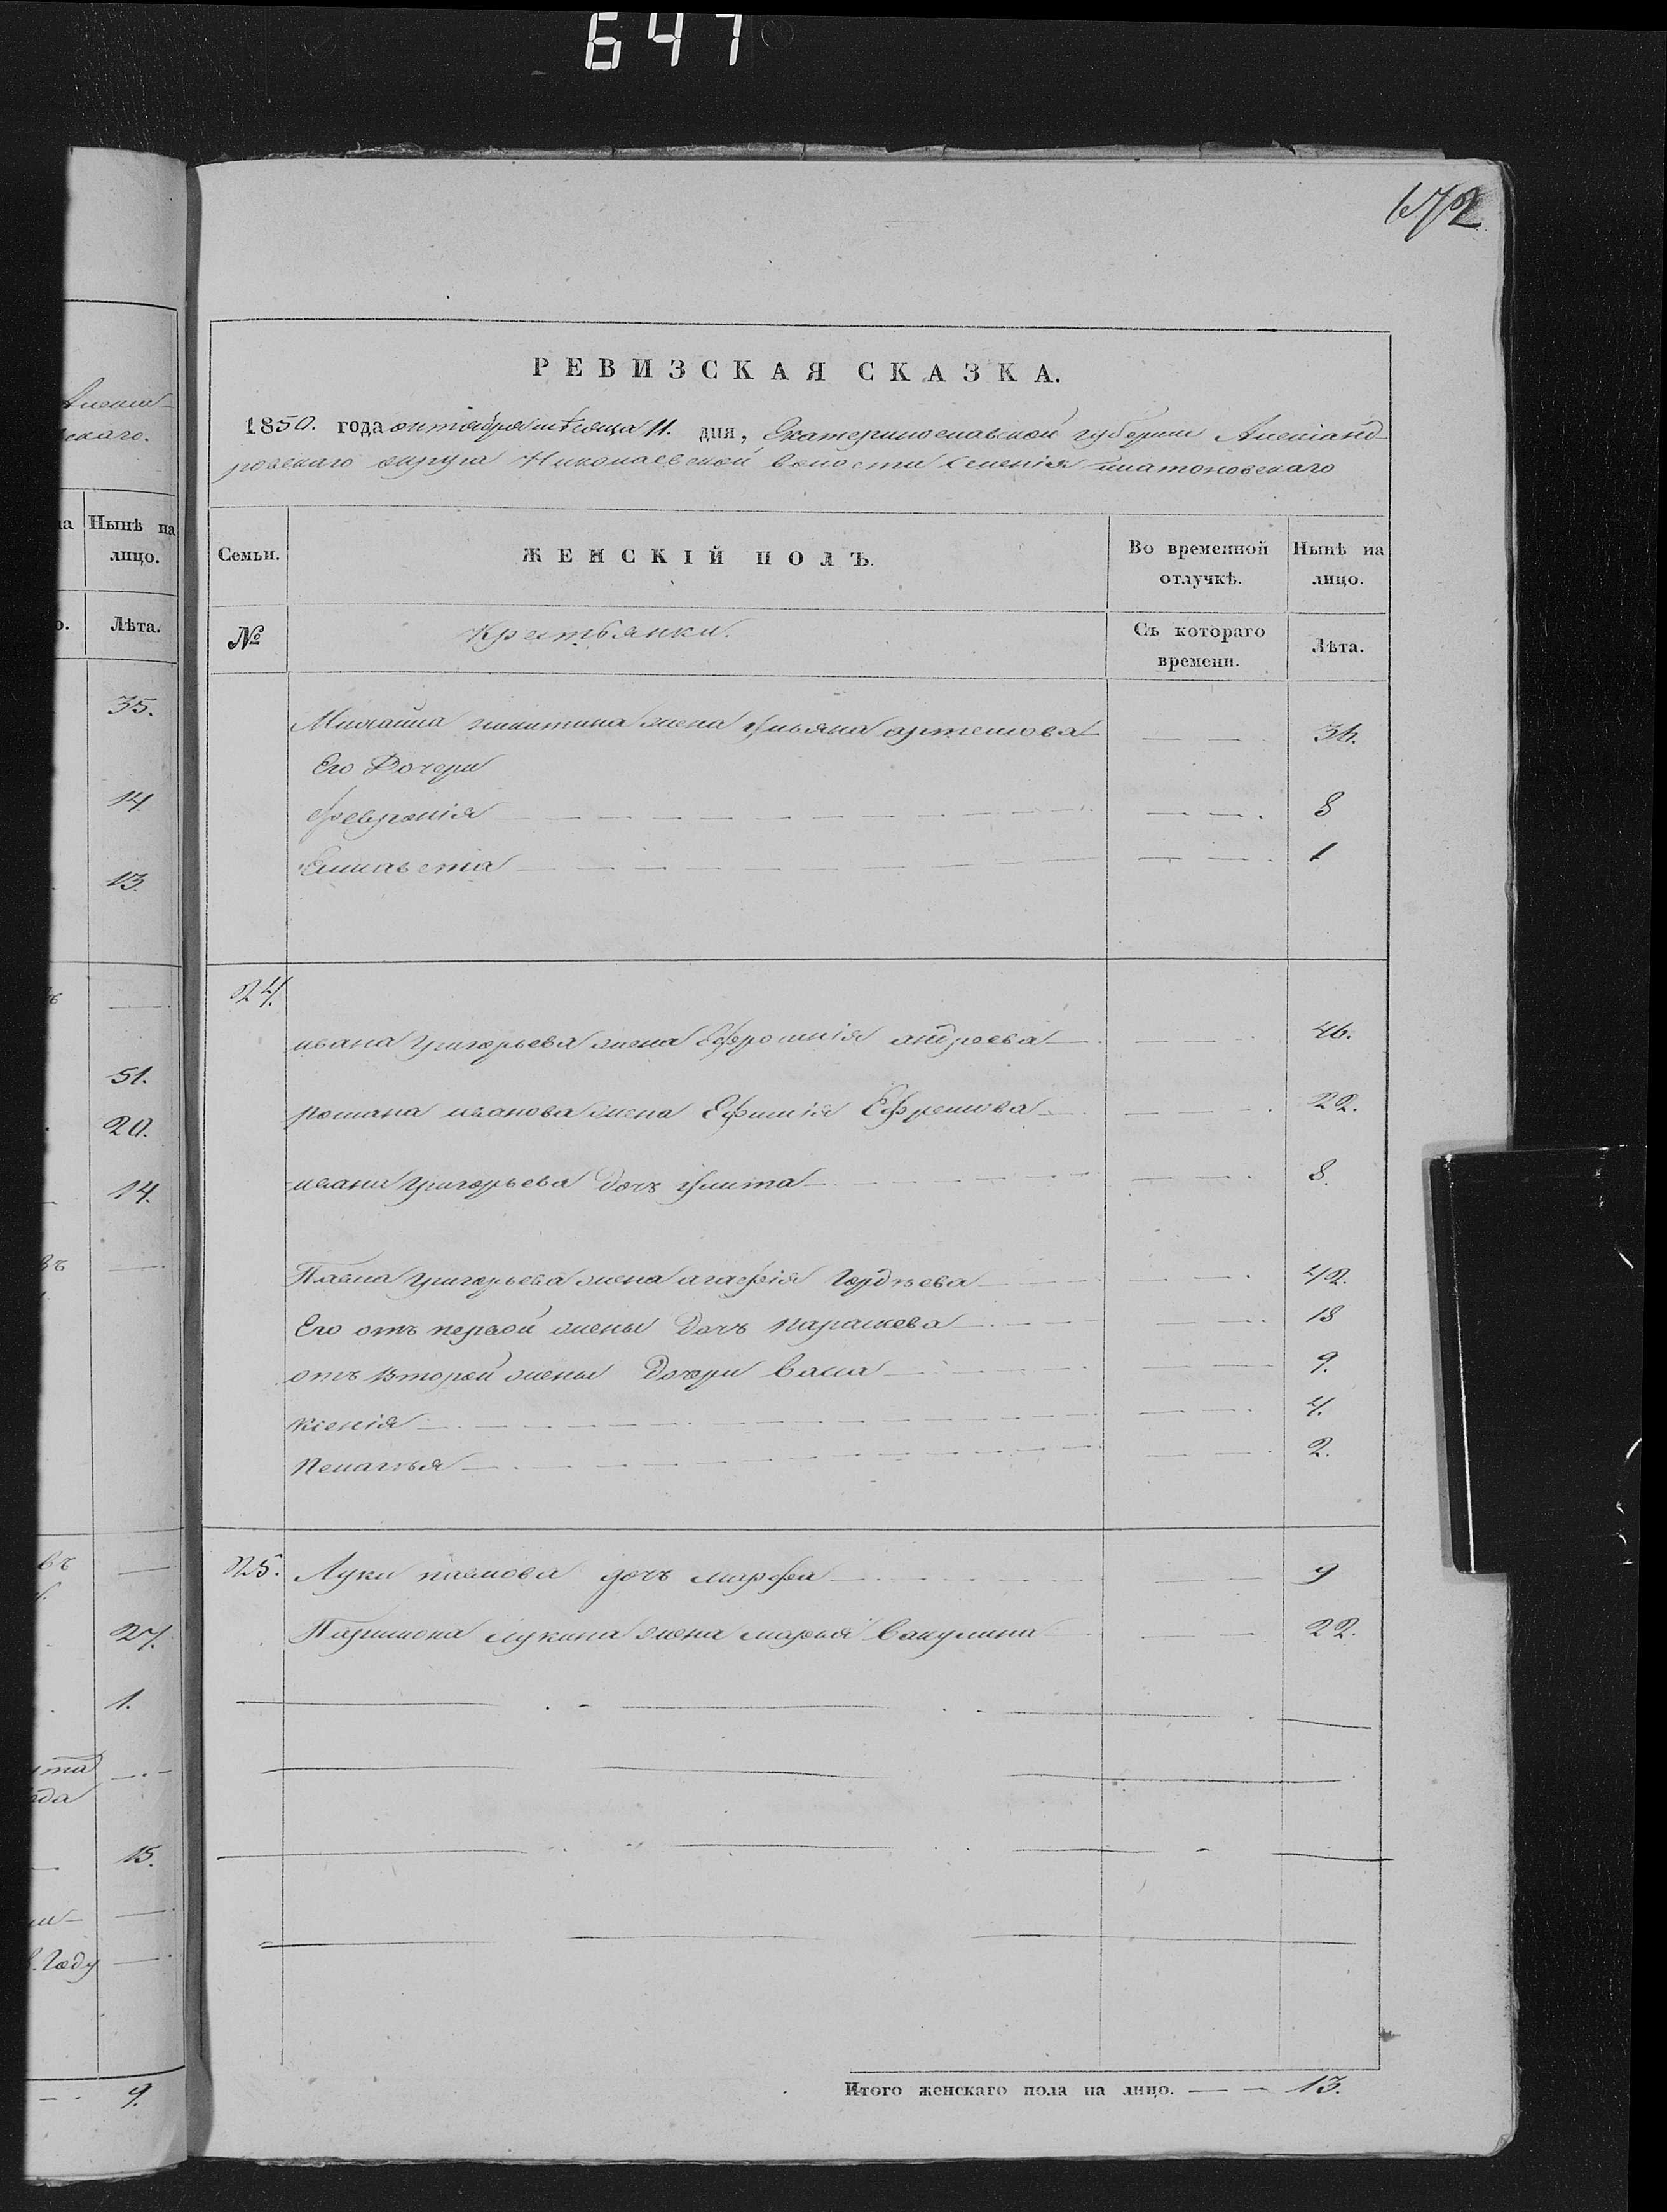 647
672
РЕВИЗСКАЯ СКАЗКА.
1850. года октября мѣсяца 11. дня, Екатеринославской губернии Александ-
ровскаго округа Николаевской волости селенія платоновскаго
Семьи.
ЖЕНСКІЙ ПОЛЪ.
Во временной отлучкѣ.
Нынѣ на лицо.
№
Крестьянки.
Съ котораго времени.
Лѣта.
Михайла никитина жена Ульяна артемова 36.
Его Дочери
Февронія 8
Елисавета 1
24.
ивана Григорьева жена Ефросинія андреева 46.
романа иванова жена Ефимія Ефремова 22.
ивана Григорьева дочь Улита 8.
Павла Григорьева жена агафія Гордѣева 42.
Его отъ первой жены дочь параскева 18
отъ второй жены дочери васса 9.
Ксенія 4.
Пелагѣя 2.
25. Луки дочь марфа 9
лукина жена марья Вакулина 22.
Итого женскаго пола на лицо. 13.
Нынѣ на
лицо.
Лѣта.
35.
14.
13.
51.
20.
14.
27.
1.
15.
Году
9.